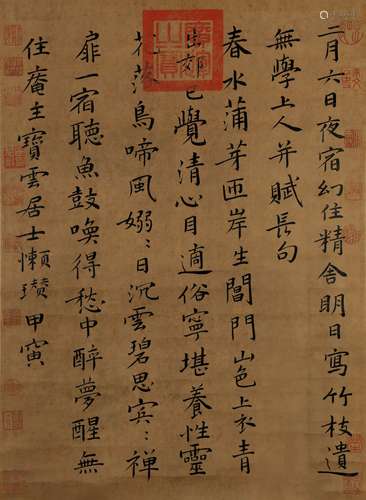 三月六日夜宿幻住精舍明日寫竹枝遺
無學上人并賦長句
春水蒲芽匝岸生閶門山色上衣青
出郊已覺清心目適俗寧堪養性靈
花落鳥啼風嫋〻日沉雲碧思冥〻禪
扉一宿聽魚鼓喚得愁中醉夢醒無
住庵主寶雲居士懶瓚甲寅